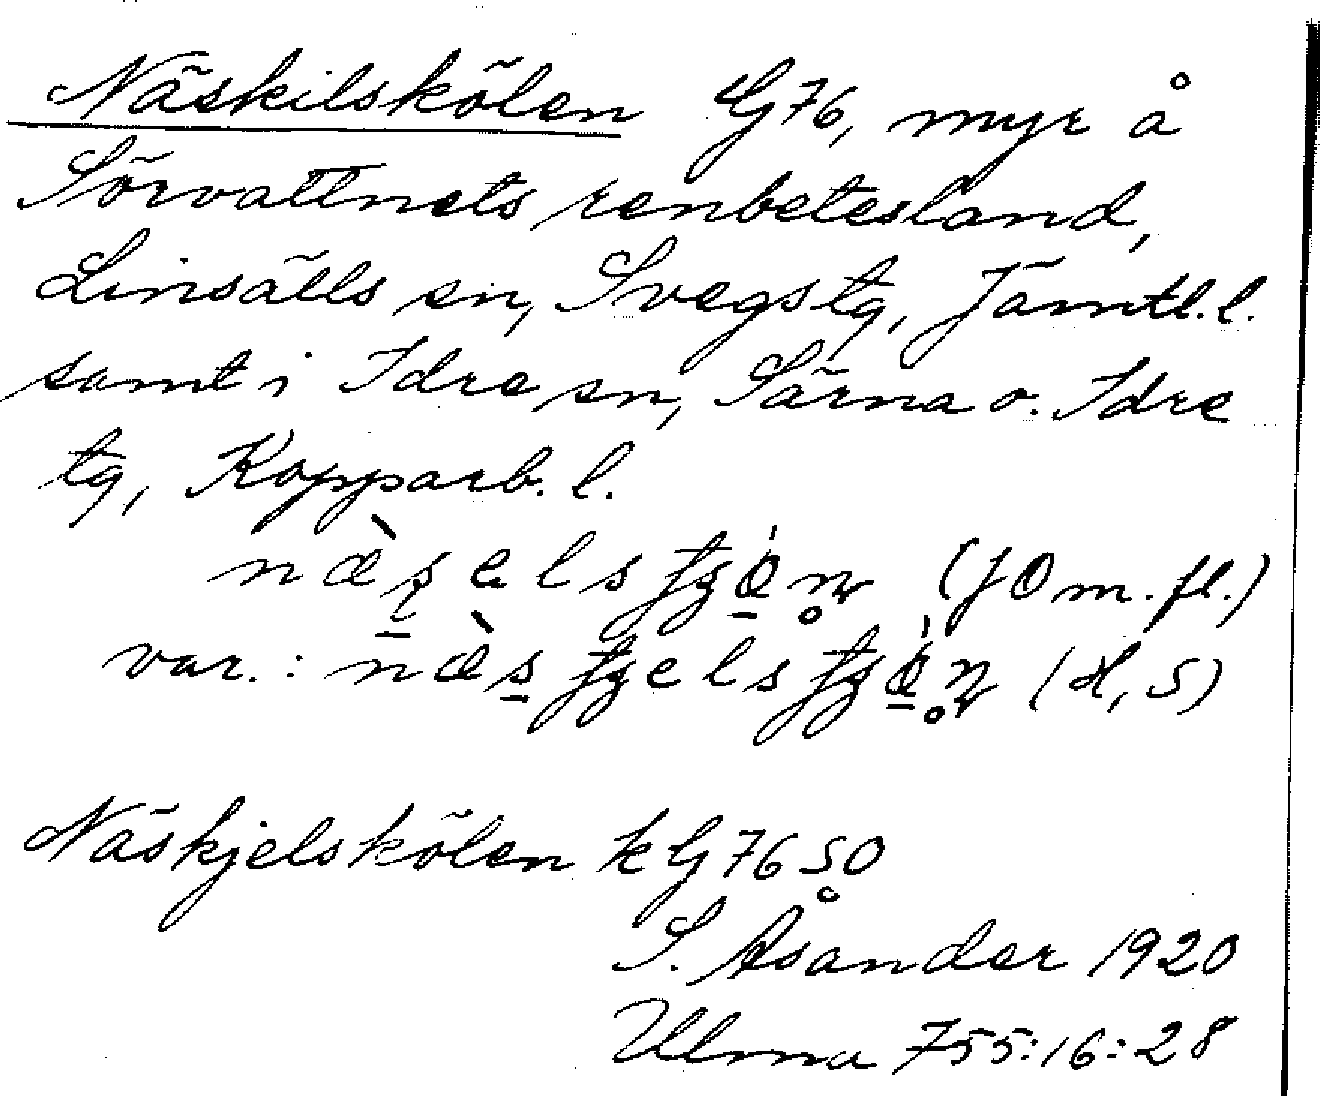 Näskilskölen G76, myr å
Sörvattnets renbetesland,
Linsälls sn, Svegs tg, Jämtl. l.
samt i Idre sn, Särna o. Idre
tg, Kopparb. l.
(JO m. fl.)
var.: (H, S)
Näskjelskölen k G 76 SO
S. Åsander 1920
Ulma 755:16:28